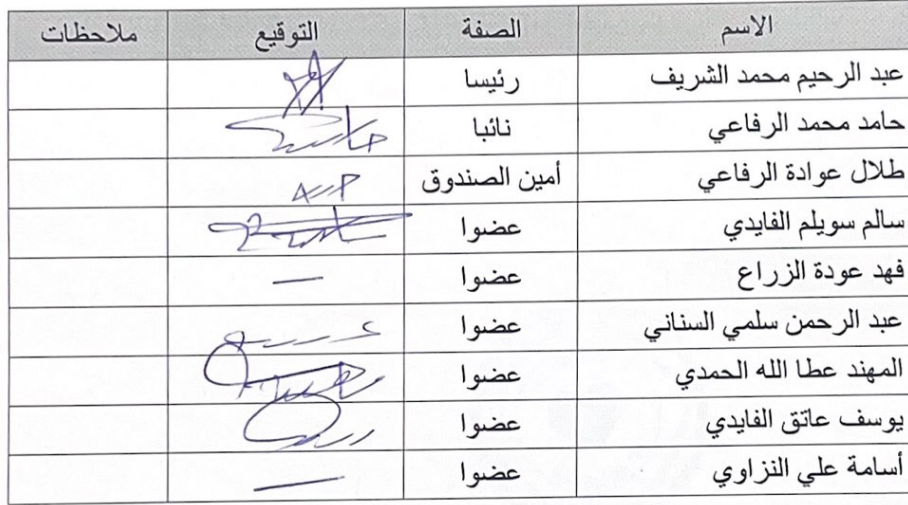 الاسم الصفة التوقيع ملاحظات
عبد الرحيم محمد الشريف رئيسا
حامد محمد الرفاعي نائبا
طلال عوادة الرفاعي أمين الصندوق
سالم سويلم الفايدي عضوا
فهد عودة الزراع عضوا —
عبد الرحمن سلمي السناني عضوا
المهند عطا الله الحمدي عضوا
يوسف عاتق الفايدي عضوا
أسامة علي النزاوي عضوا —